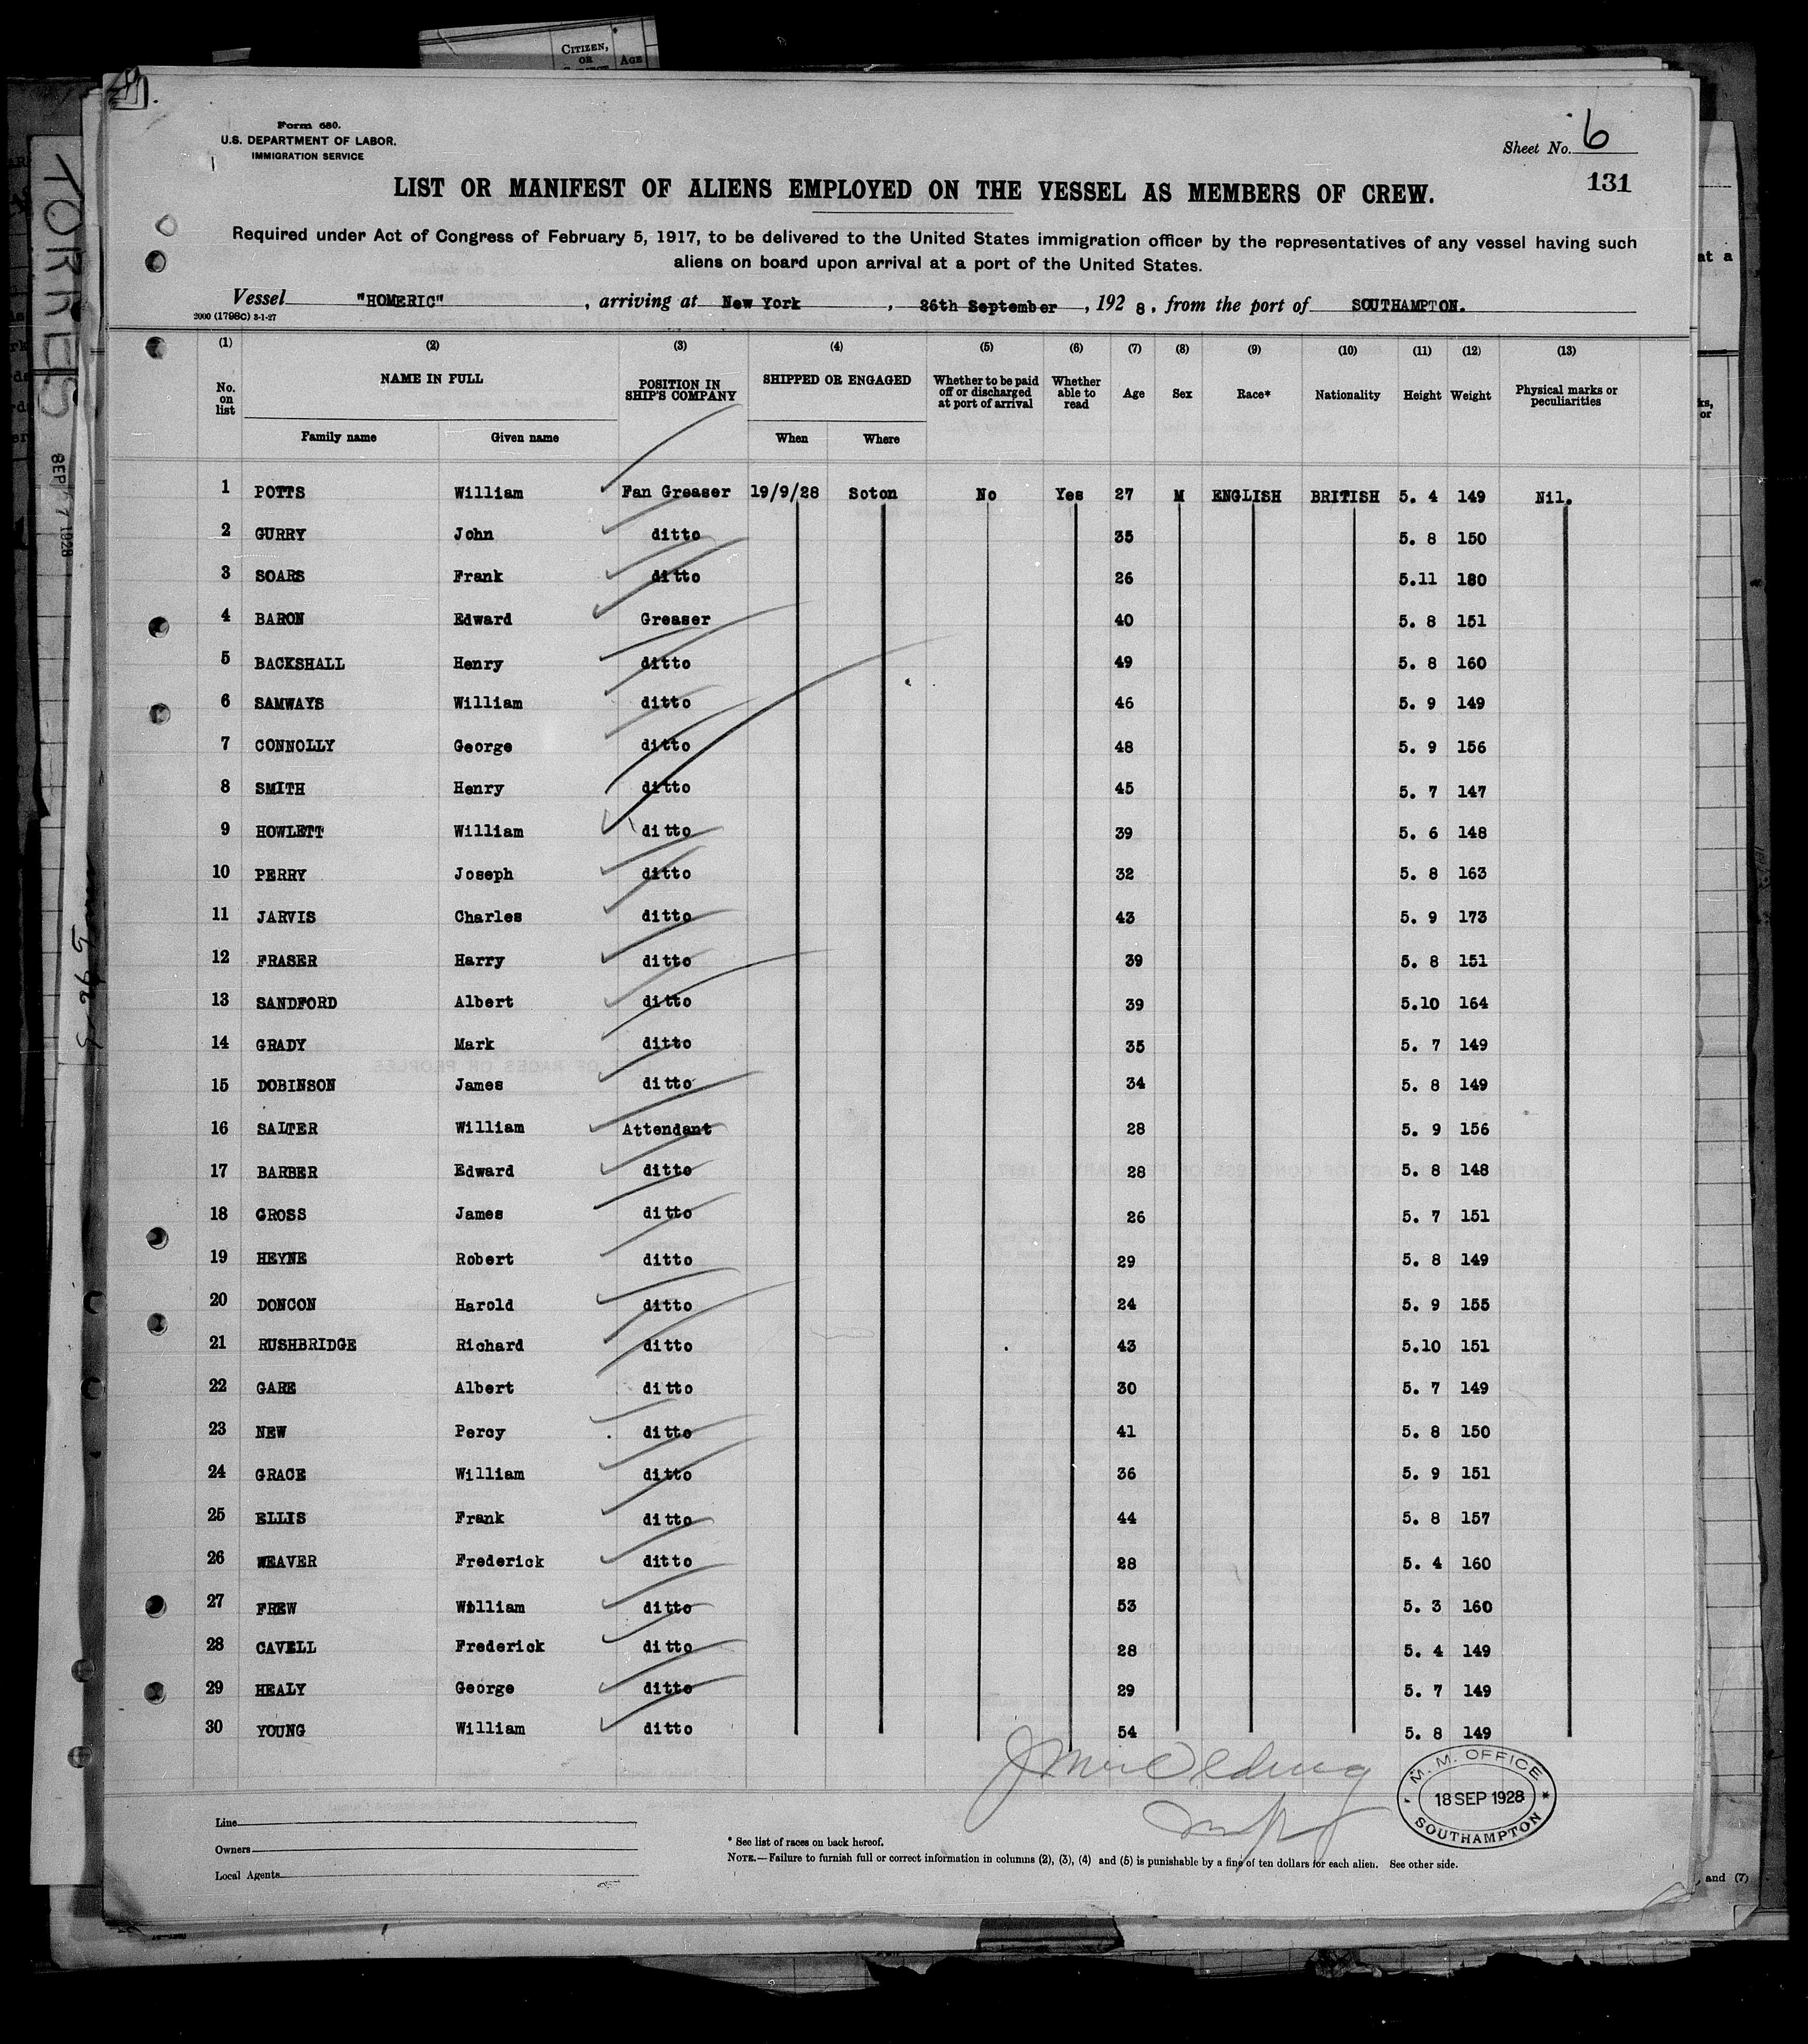 CITIZEN,
OR
AGE
Form 680.
U.S. DEPARTMENT OF LABOR.
IMMIGRATION SERVICE
Sheet No. 6
131
LIST OR MANIFEST OF ALIENS EMPLOYED ON THE VESSEL AS MEMBERS OF CREW.
Required under Act of Congress of February 5, 1917, to be delivered to the United States immigration officer by the representatives of any vessel having such
aliens on board upon arrival at a port of the United States.
Vessel "HOMERIC", arriving at New York, 26th September, 1928, from the port of SOUTHAMPTON.
2000 (1798c) 3-1-27
(1) (2) (3) (4) (5) (6) (7) (8) (9) (10) (11) (12) (13)
No. on list NAME IN FULL POSITION IN SHIP'S COMPANY SHIPPED OR ENGAGED Whether to be paid off or discharged at port of arrival Whether able to read Age Sex Race* Nationality Height Weight Physical marks or peculiarities
Family name Given name When Where
1 POTTS William Fan Greaser 19/9/28 Soton No Yes 27 M ENGLISH BRITISH 5. 4 149 Nil.
2 GURRY John ditto 35 5. 8 150
3 SOARS Frank ditto 26 5.11 180
4 BARON Edward Greaser 40 5. 8 151
5 BACKSHALL Henry ditto 49 5. 8 160
6 SAMWAYS William ditto 46 5. 9 149
7 CONNOLLY George ditto 48 5. 9 156
8 SMITH Henry ditto 45 5. 7 147
9 HOWLETT William ditto 39 5. 6 148
10 PERRY Joseph ditto 32 5. 8 163
11 JARVIS Charles ditto 43 5. 9 173
12 FRASER Harry ditto 39 5. 8 151
13 SANDFORD Albert ditto 39 5.10 164
14 GRADY Mark ditto 35 5. 7 149
15 DOBINSON James ditto 34 5. 8 149
16 SALTER William Attendant 28 5. 9 156
17 BARBER Edward ditto 28 5. 8 148
18 GROSS James ditto 26 5. 7 151
19 HEYNE Robert ditto 29 5. 8 149
20 DONCON Harold ditto 24 5. 9 155
21 RUSHBRIDGE Richard ditto 43 5.10 151
22 GARE Albert ditto 30 5. 7 149
23 NEW Percy ditto 41 5. 8 150
24 GRACE William ditto 36 5. 9 151
25 ELLIS Frank ditto 44 5. 8 157
26 WEAVER Frederick ditto 28 5. 4 160
27 FREW William ditto 53 5. 3 160
28 CAVELL Frederick ditto 28 5. 4 149
29 HEALY George ditto 29 5. 7 149
30 YOUNG William ditto 54 5. 8 149
M. M. OFFICE
18 SEP 1928
SOUTHAMPTON
Line
Owners
Local Agents
* See list of races on back hereof.
NOTE.—Failure to furnish full or correct information in columns (2), (3), (4) and (5) is punishable by a fine of ten dollars for each alien. See other side.
TORRES
SEP 1928
at a
and (7)